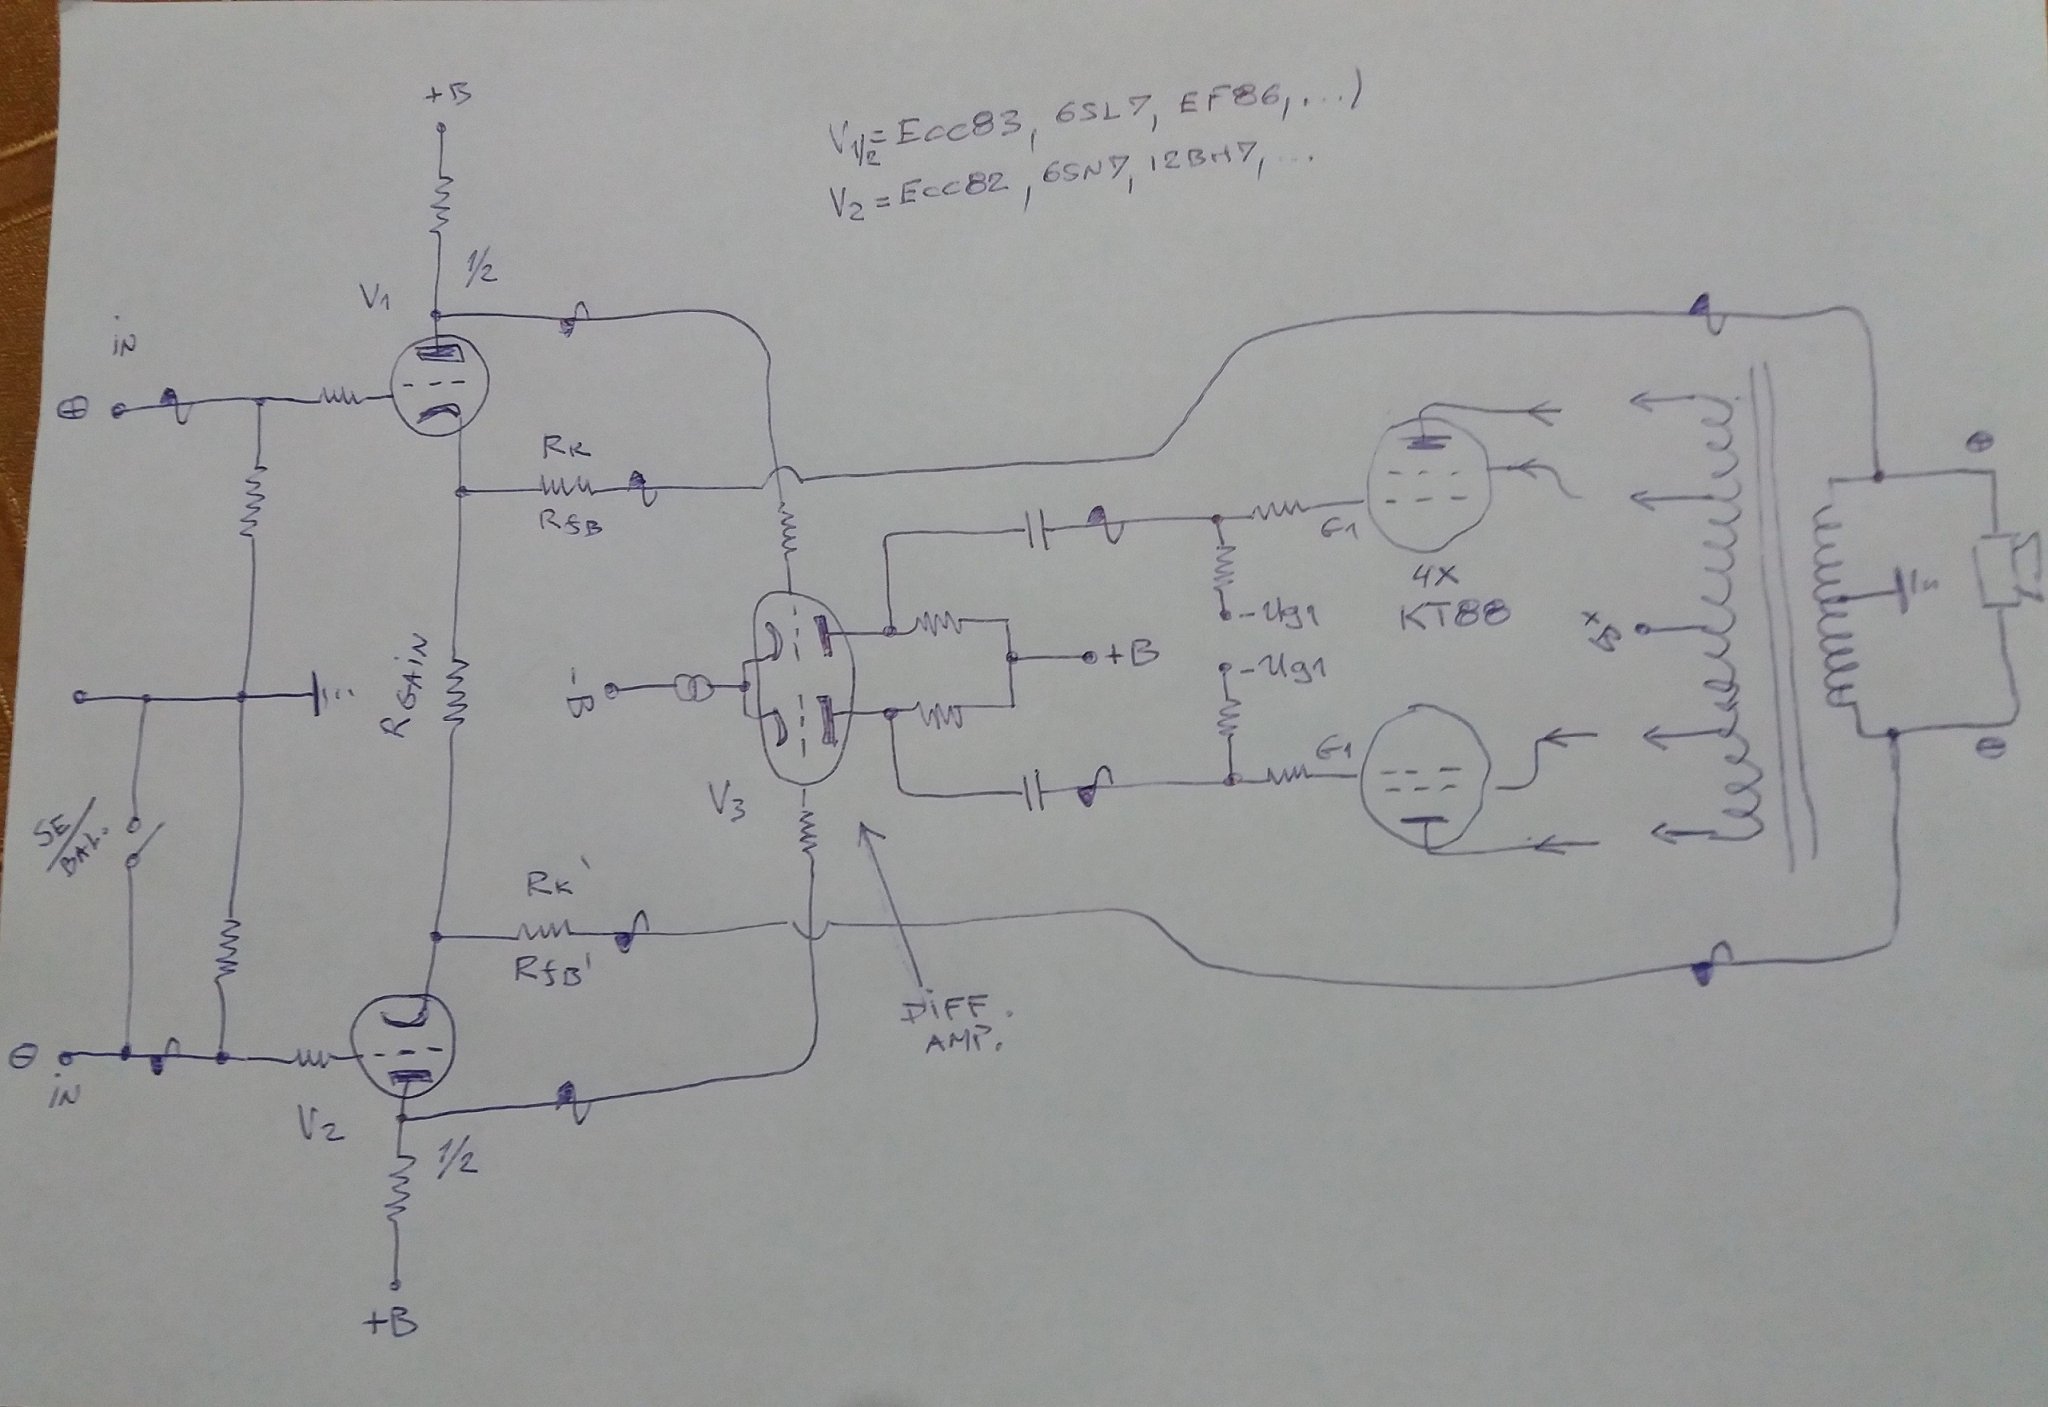 +B
V1/2 = Ecc83, 6SL7, EF86, ...)
V2 = Ecc82, 6SN7, 12BH7, ...
1/2
V1
iN
⊕
RK
RfB
G1
4X
KT88
-Ug1
-Ug1
+B
-B
RGAiN
G1
V3
SE/
BAL.
RK'
RfB'
DiFF.
AMP.
⊖
iN
V2
1/2
+B
⊕
⊖